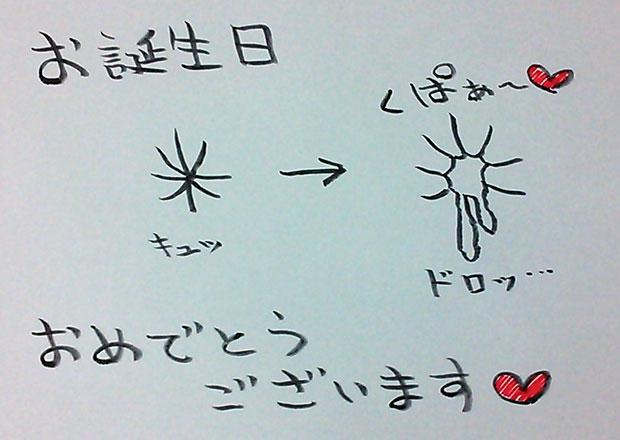 お誕生日
くぱぁ〜
キュッ
→
ドロッ…
おめでとう
ございます